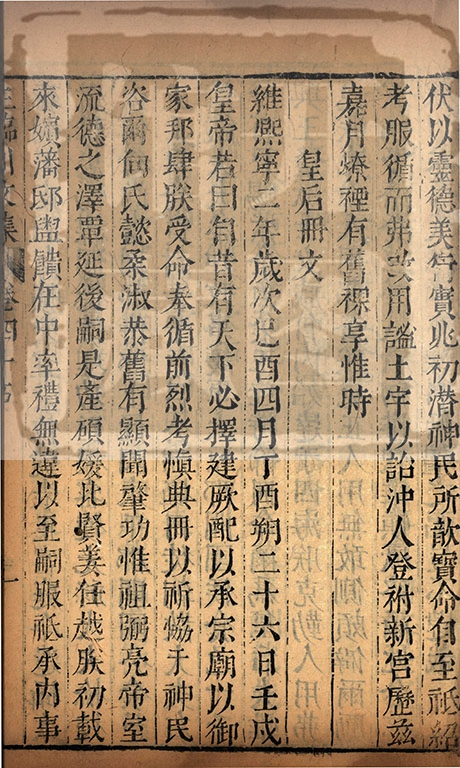 伏以靈德美實兆初潜神民所歆寶命自至祇紹
考服循而弗改用謐土宇以詒沖人登祔新宫歷兹
嘉月燎禋有舊祼享惟時
皇后冊文
維熙寧二年歲次己酉四月丁酉朔二十六日壬戌
皇帝若曰自昔有天下必擇建厥配以承宗廟以御
家邦肆朕受命奉循前烈考愼典冊以祈恊于神民
咨爾向氏懿柔淑恭舊有顯聞肇功惟祖弼亮帝室
流德之澤覃延後嗣是產碩媛比賢姜任越朕初載
來嬪藩邸盥饋在中率禮無違以至嗣服祇承内事
王臨川文集 卷四十